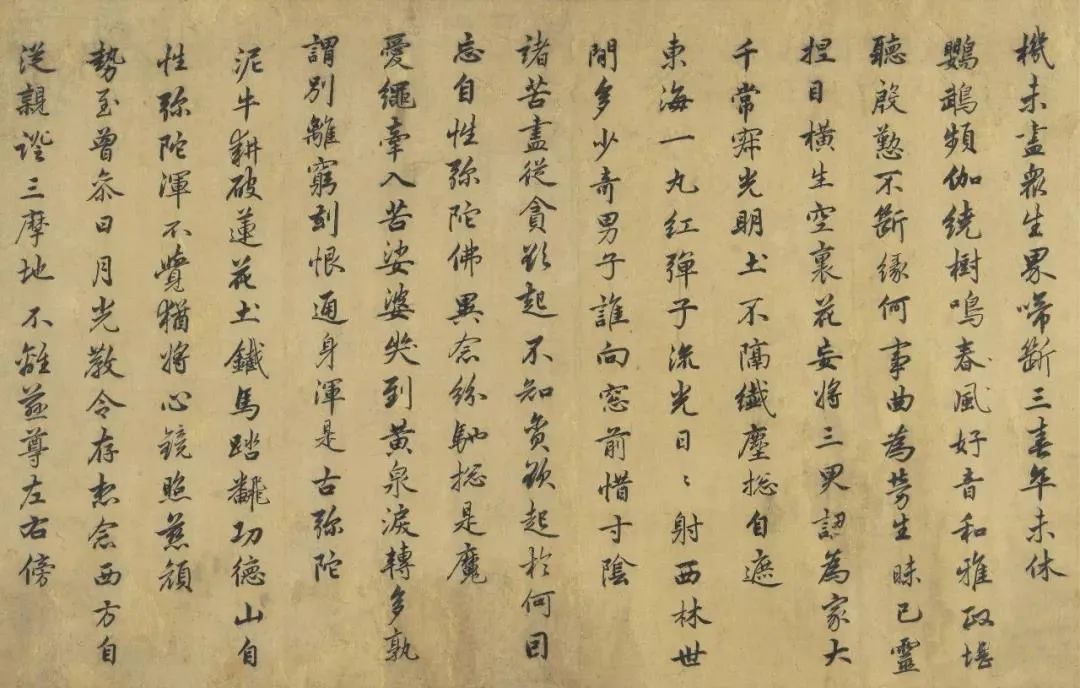 機未盡衆生界啼斷三春年未休
鸚鵡頻伽繞樹鳴春風好音和雅政堪
聽殷懃不斷緣何事曲為勞生昧己靈
捏目橫生空裏花妄將三界認為家大
千常寂光明土不隔纖塵揔自遮
東海一丸紅彈子流光日〻射西林世
間多少奇男子誰向窓前惜寸陰
諸苦盡從貪欲起不知貪欲起於何因
忘自性弥陀佛異念紛馳揔是魔
愛繩牽入苦娑婆哭到黃泉淚轉多孰
謂別離窮劫恨通身渾是古弥陀
泥牛耕破蓮花土鐵馬踏翻功德山自
性弥陀渾不覺猶將心鏡照慈顔
勢至曾叅日月光教令存想念西方自
從親證三摩地不離慈尊左右傍